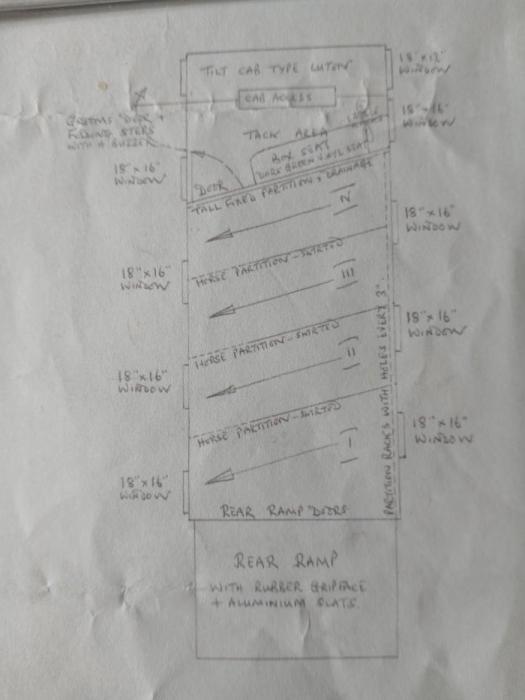 TILT CAB TYPE LUTON
18"x12"
WINDOW
CAB ACCESS
18"x16"
WINDOW
GROOMS DOOR +
FOLDING STEPS
WITH A BUZZER
TACK AREA
BOX SEAT
DARK GREEN VINYL SEAT
18"x16"
WINDOW
DOOR
TALL FIXED PARTITION & DRAINAGE
IV
18"x16"
WINDOW
HORSE PARTITION - SKIRTED
18"x16"
WINDOW
III
PARTITION RACKS WITH HOLES EVERY 3".
HORSE PARTITION - SKIRTED
18"x16"
WINDOW
II
18"x16"
WINDOW
HORSE PARTITION - SKIRTED
18"x16"
WINDOW
I
18"x16"
WINDOW
REAR RAMP DOORS
REAR RAMP
WITH RUBBER GRIPFACE
+ ALUMINIUM SLATS.